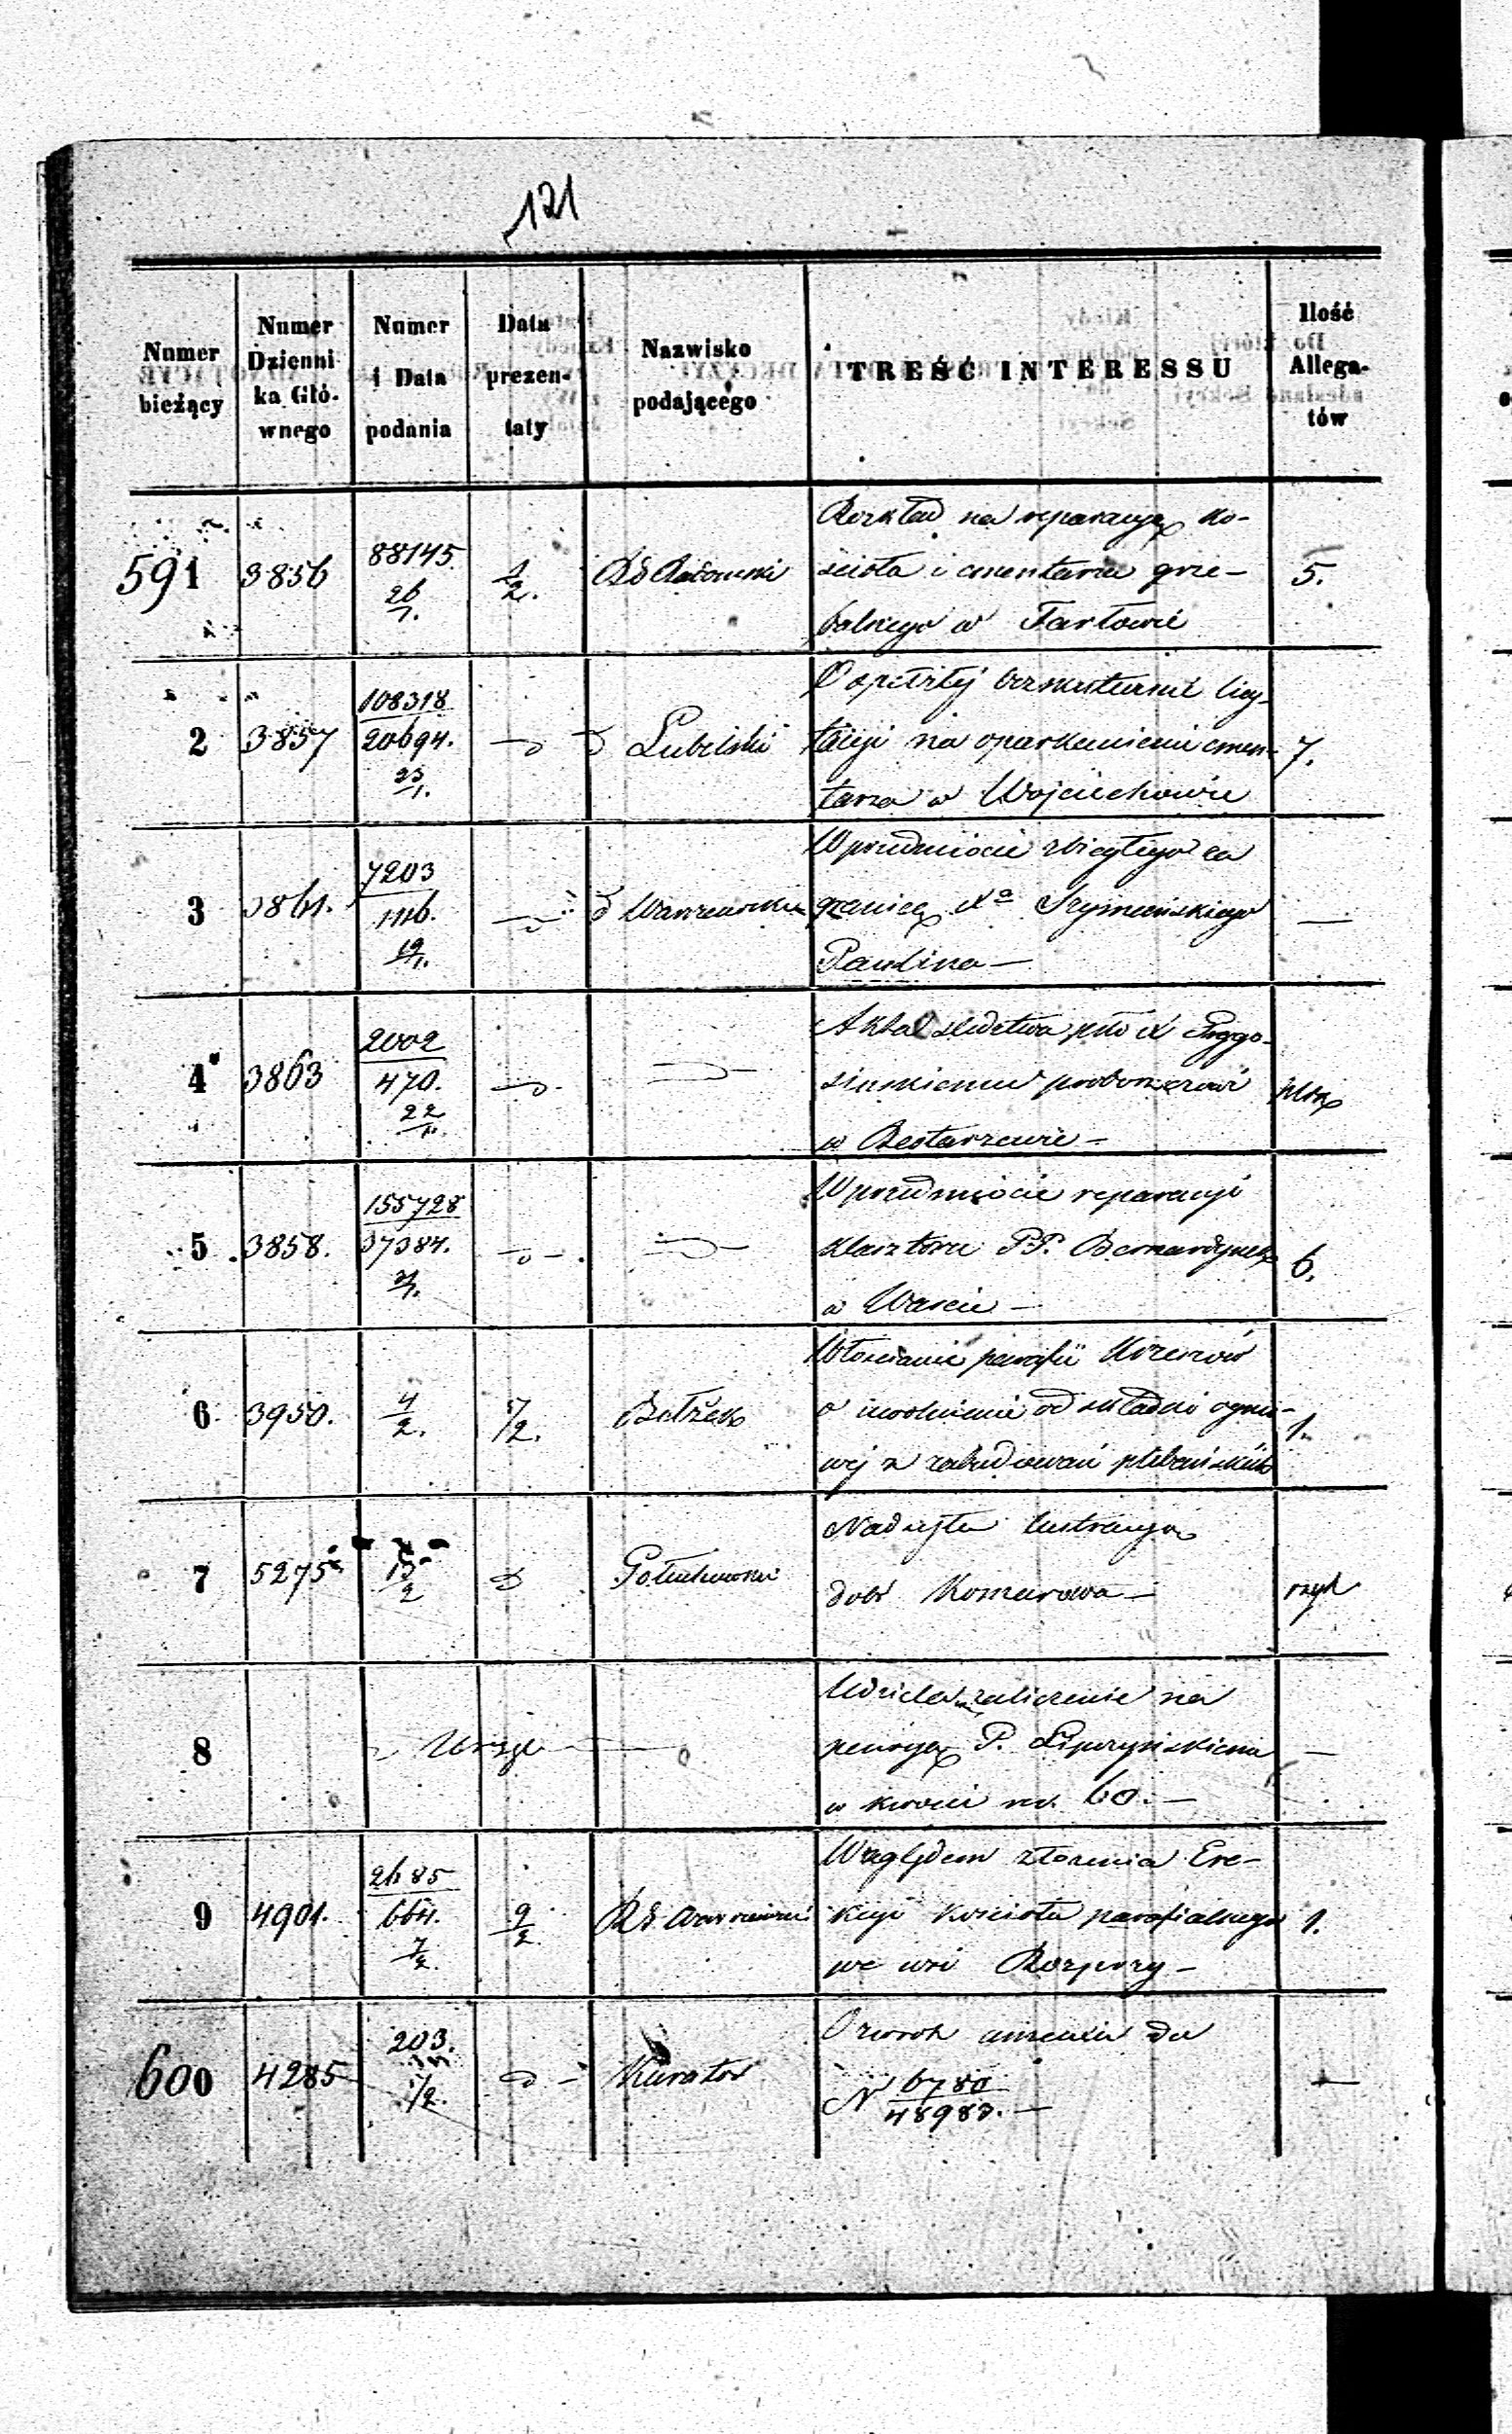 121
Numer bieżący
Numer Dzienni ka Głó- wnego
Numer i Data podania
Data prezen- taty
Nazwisko podającego
TREŚĆ INTERESSU
Ilość Allega- tów
591 3856 88145. 26/1. 1/2. RG Radomski
Rozkład na reparacyą ko-
ścioła i cmentarza grze-
balnego w Tarłowie
5.
2 3857 108318/20694. 23/1. Lubelski
O odbytej bezskutecznie licy-
tacyi na oparkanienie cmen-
tarza w Wojciechowie
7.
3 3861. 7203/1116. 19/1. Warszawski
W przedmiocie zbiegłego za
granicę Xa Szymańskiego
Paulina —
—
4 3863 2002/470. 22/1.
Akta śledztwa pko X
proboszczowi
w
5 3858. 155728/37384.
W przedmiocie reparacyi
klasztoru PP. Bernardynek
w Warcie —
6.
6 3950. 4/2. 7/2.
Włościanie parafii Krzeszów
o uwolnienie od składki ognio-
wej z zabudowań plebańskich
1.
7 5275 15/2 Gołuchowski
Nadsyła lustracyą
dóbr Komarowa —
8 Urzęd
zaliczenie na
pensyą P. Lipczyńskiemu
w kwocie rs. 60. —
—
9 4901. 2685/664. 7/2. 9/2 RG Warszawski
Względem złożenia Ere-
kcyi kościoła parafialnego
we wsi Rozprzy —
1.
600 4285 203. 5/2. Kurator
O zwrot annexu do
N 6780/48983. —
—